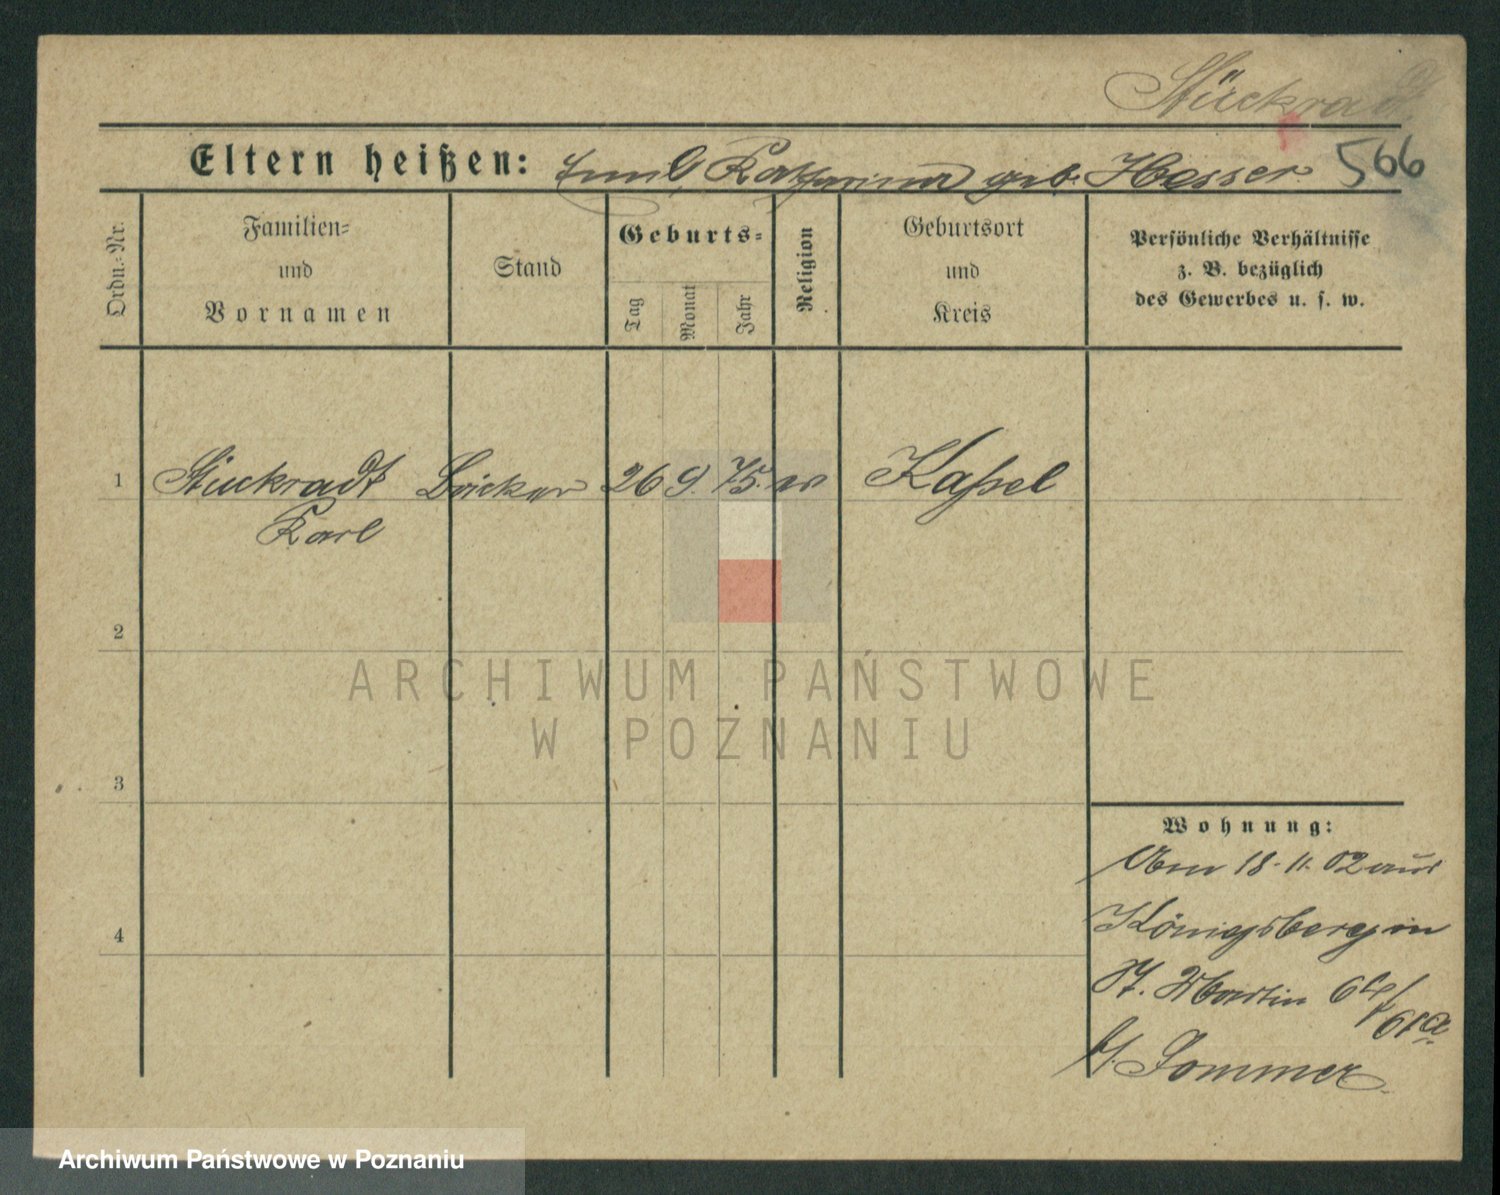 Stückrad
Eltern heißen: Emil, Katharina geb. Hesser 566
Ordn.-Nr.
Familien-
und
Vornamen
Stand
Geburts-
Tag
Monat
Jahr
Religion
Geburtsort
und
Kreis
Persönliche Verhältnisse
z. B. bezüglich
des Gewerbes u. s. w.
1 Stückradt 26 9. 75. Kassel
Karl
2
3
4
Wohnung:
Am 18.11.02 aus
Königsberg in
St. Martin 64/
61a
b/. Sommer.
ARCHIWUM PAŃSTWOWE
W POZNANIU
Archiwum Państwowe w Poznaniu